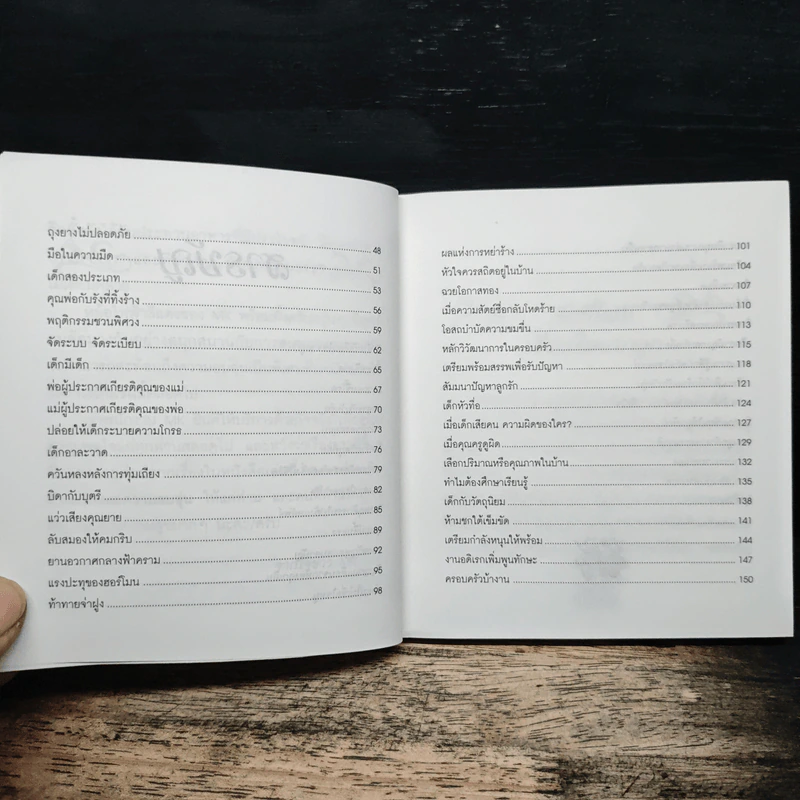 ถุงยางไม่ปลอดภัย 48
มือในความมืด 51
เด็กสองประเภท 53
คุณพ่อกับรังที่ทิ้งร้าง 56
พฤติกรรมชวนพิศวง 59
จัดระบบ จัดระเบียบ 62
เด็กมีเด็ก 65
พ่อผู้ประกาศเกียรติคุณของแม่ 67
แม่ผู้ประกาศเกียรติคุณของพ่อ 70
ปล่อยให้เด็กระบายความโกรธ 73
เด็กอาละวาด 76
ควันหลงหลังการทุ่มเถียง 79
บิดากับบุตรี 82
แว่วเสียงคุณยาย 85
ลับสมองให้คมกริบ 89
ยานอวกาศกลางฟ้าคราม 92
แรงปะทุของฮอร์โมน 95
ท้าทายจ่าฝูง 98
ผลแห่งการหย่าร้าง 101
หัวใจควรสถิตอยู่ในบ้าน 104
ฉวยโอกาสทอง 107
เมื่อความสัตย์ซื่อกลับโหดร้าย 110
โอสถบำบัดความขมขื่น 113
หลักวิวัฒนาการในครอบครัว 115
เตรียมพร้อมสรรพเพื่อรับปัญหา 118
สัมมนาปัญหาลูกรัก 121
เด็กหัวทื่อ 124
เมื่อเด็กเสียคน ความผิดของใคร? 127
เมื่อคุณครูดูผิด 129
เลือกปริมาณหรือคุณภาพในบ้าน 132
ทำไมต้องศึกษาเรียนรู้ 135
เด็กกับวัตถุนิยม 138
ห้ามชกใต้เข็มขัด 141
เตรียมกำลังหนุนให้พร้อม 144
งานอดิเรกเพิ่มพูนทักษะ 147
ครอบครัวบ้างาน 150